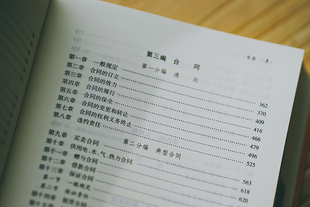 目录 · 3 ·
第三编 合同
第一分编 通则
第一章 一般规定
第二章 合同的订立 362
第三章 合同的效力 370
第四章 合同的履行 409
第五章 合同的保全 416
第六章 合同的变更和转让 466
第七章 合同的权利义务终止 479
第八章 违约责任 496
第二分编 典型合同 525
第九章 买卖合同
第十章 供用电、水、气、热力合同 563
第十一章 赠与合同 618
第十二章 借款合同
第十三章 保证合同
第一节 一般规定